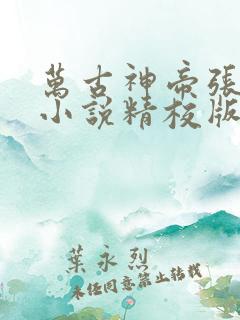 萬古神帝張
小說精校版
葉永烈
未经同意禁止转载